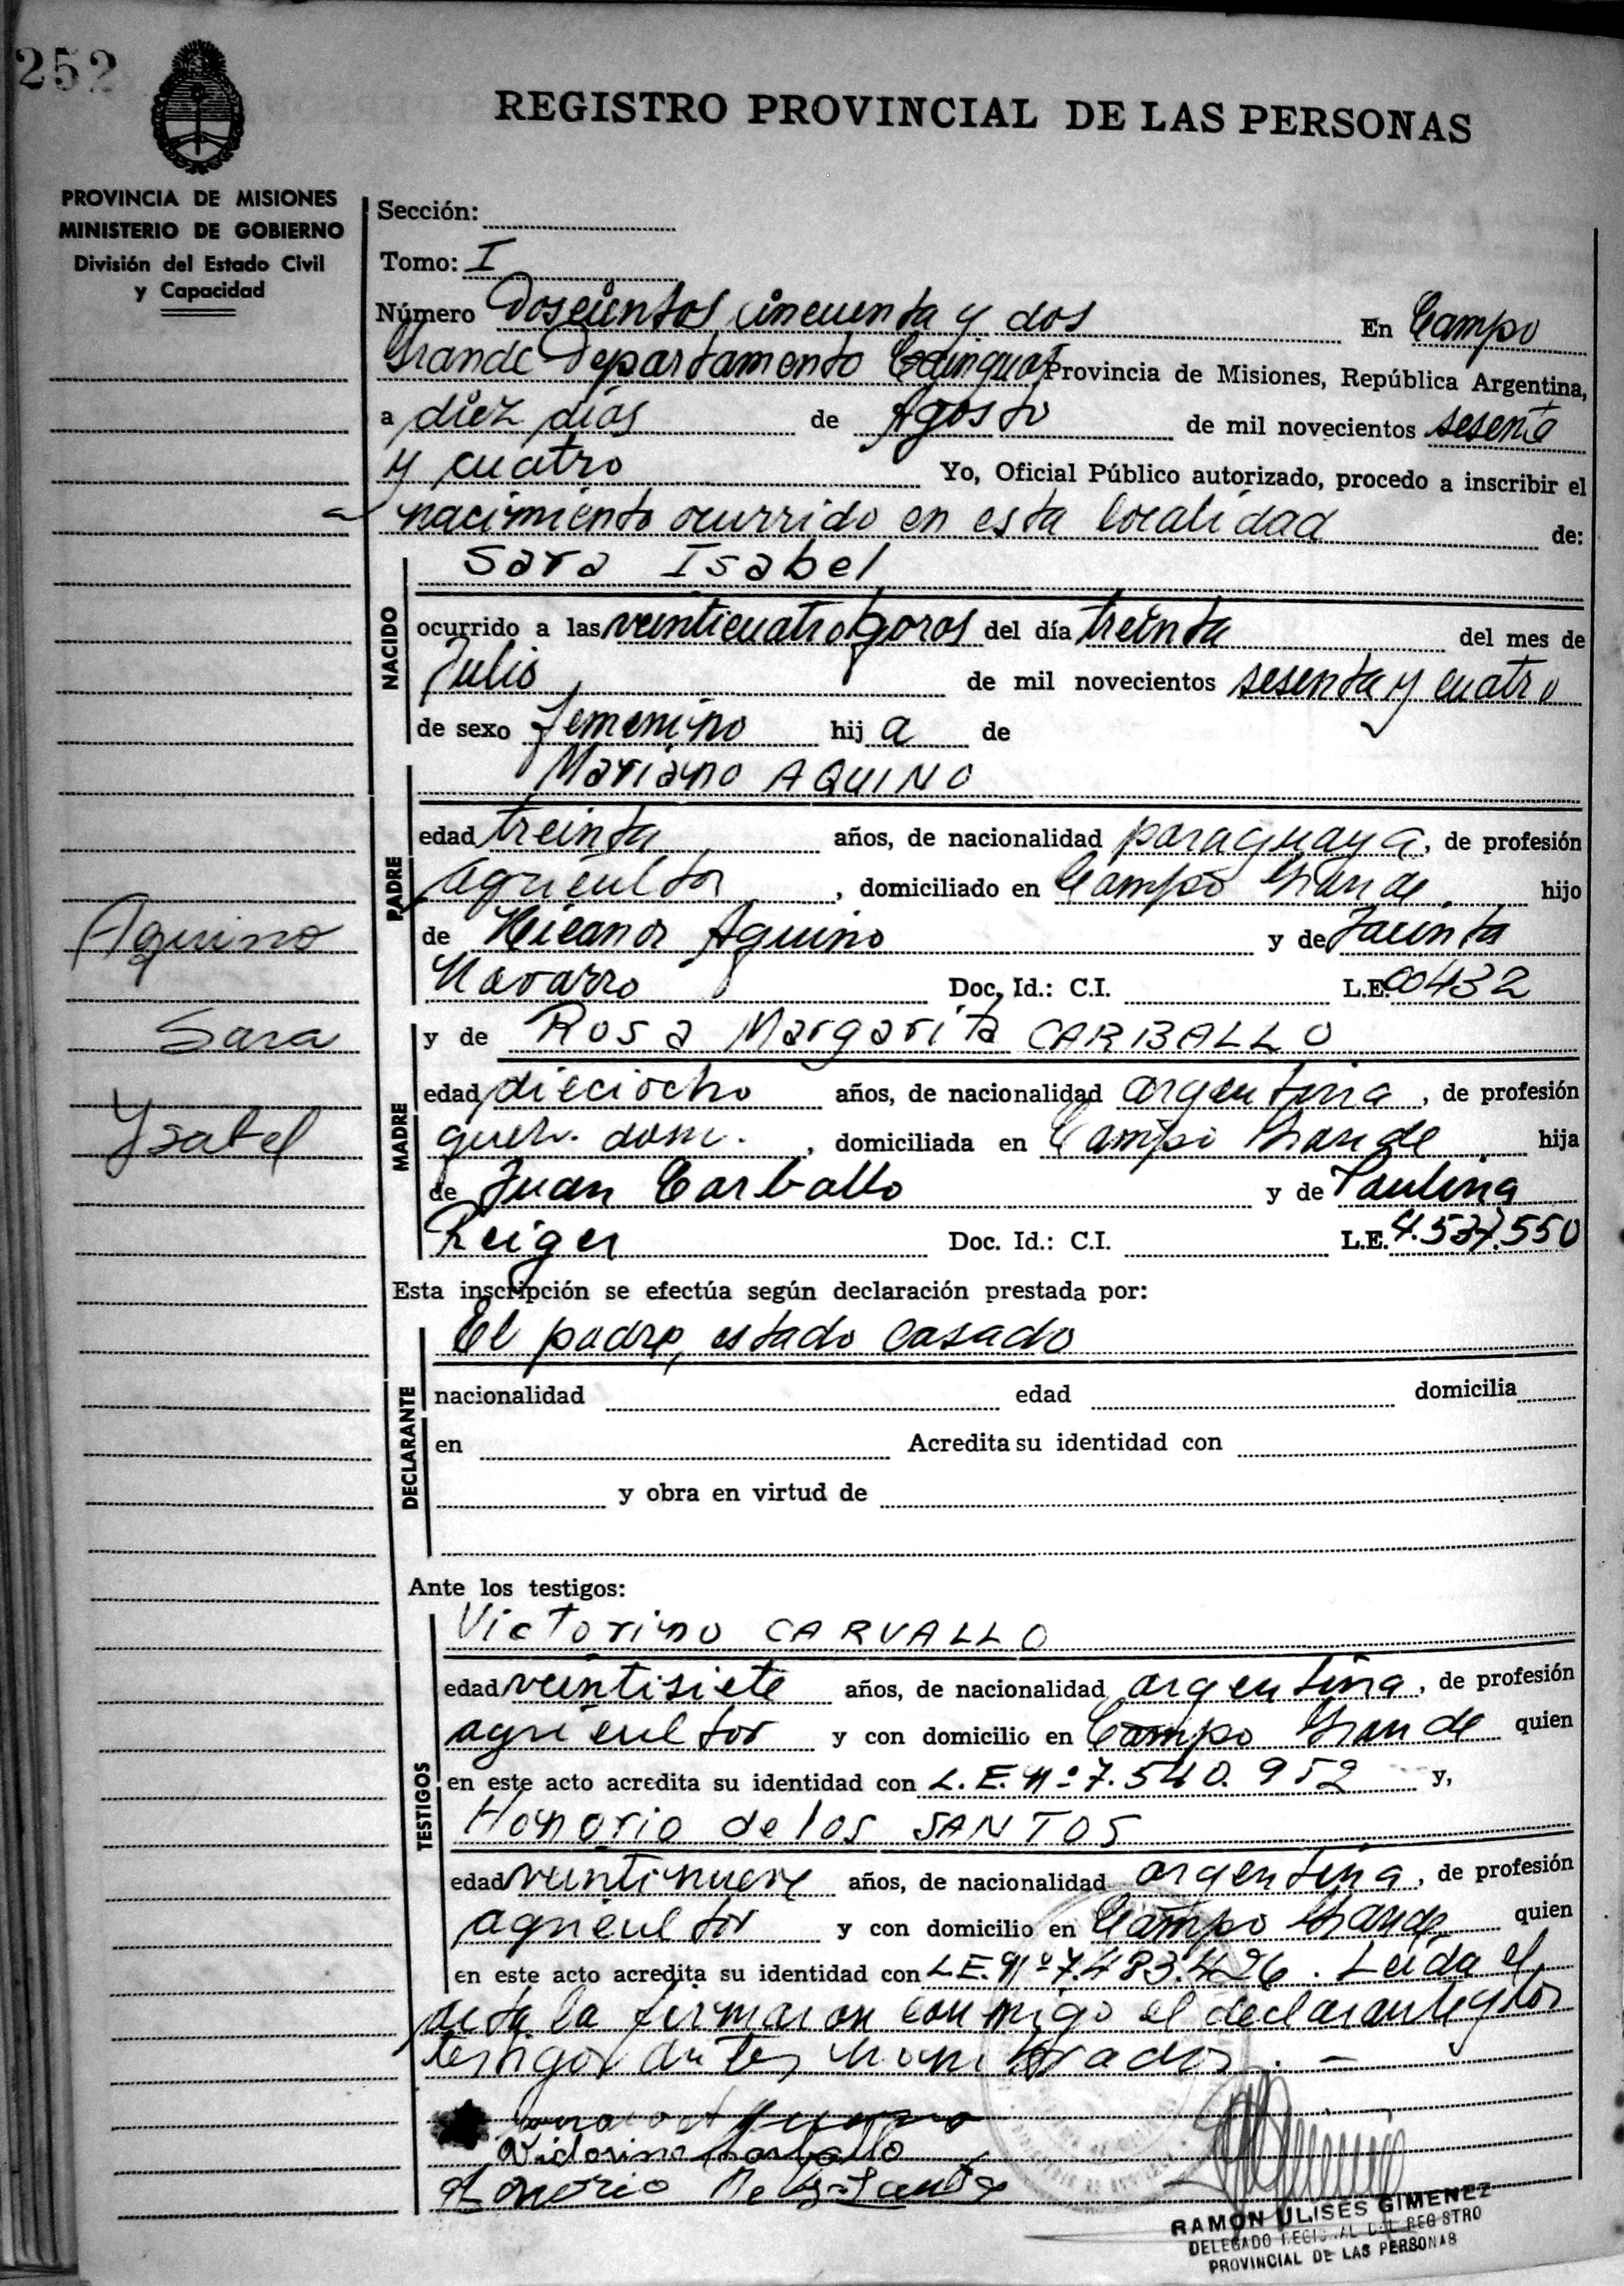 252
REGISTRO PROVINCIAL DE LAS PERSONAS
PROVINCIA DE MISIONES
MINISTERIO DE GOBIERNO
División del Estado Civil
y Capacidad
Sección:
Tomo: I
Número Doscientos cincuenta y dos En Campo
Grande Departamento Cainguas Provincia de Misiones, República Argentina,
a diez días de Agosto de mil novecientos sesenta
y cuatro Yo, Oficial Público autorizado, procedo a inscribir el
nacimiento ocurrido en esta localidad de:
NACIDO
Sara Isabel
ocurrido a las veinticuatro horas del día treinta del mes de
Julio de mil novecientos sesenta y cuatro
de sexo femenino hij a de
PADRE
Mariano AQUINO
edad treinta años, de nacionalidad paraguaya, de profesión
agricultor, domiciliado en Campo Grande hijo
de Nicanor Aquino y de Jacinta
Navarro Doc. Id.: C.I. L.E. 00432
Aquino
Sara
Ysabel
MADRE
y de Rosa Margarita CARBALLO
edad dieciocho años, de nacionalidad argentina, de profesión
queh. dom., domiciliada en Campo Grande hija
de Juan Carballo y de Paulina
Reiger Doc. Id.: C.I. L.E. 4.537.550
Esta inscripción se efectúa según declaración prestada por:
DECLARANTE
El padre, estado casado
nacionalidad edad domicilia
en Acredita su identidad con
y obra en virtud de
Ante los testigos:
TESTIGOS
Victorino CARVALLO
edad veintisiete años, de nacionalidad argentina, de profesión
agricultor y con domicilio en Campo Grande quien
en este acto acredita su identidad con L.E. Nº 7.540.952 y,
Honorio de los SANTOS
edad veintinueve años, de nacionalidad argentina, de profesión
agricultor y con domicilio en Campo Grande quien
en este acto acredita su identidad con L.E. Nº 7.483.426. Leída el
acta la firmaron conmigo el declarante y los
testigos antes nombrados. -
Victorino Carballo
Honorio De los Santos
RAMON ULISES GIMENEZ
DELEGADO REGIONAL DEL REGISTRO
PROVINCIAL DE LAS PERSONAS